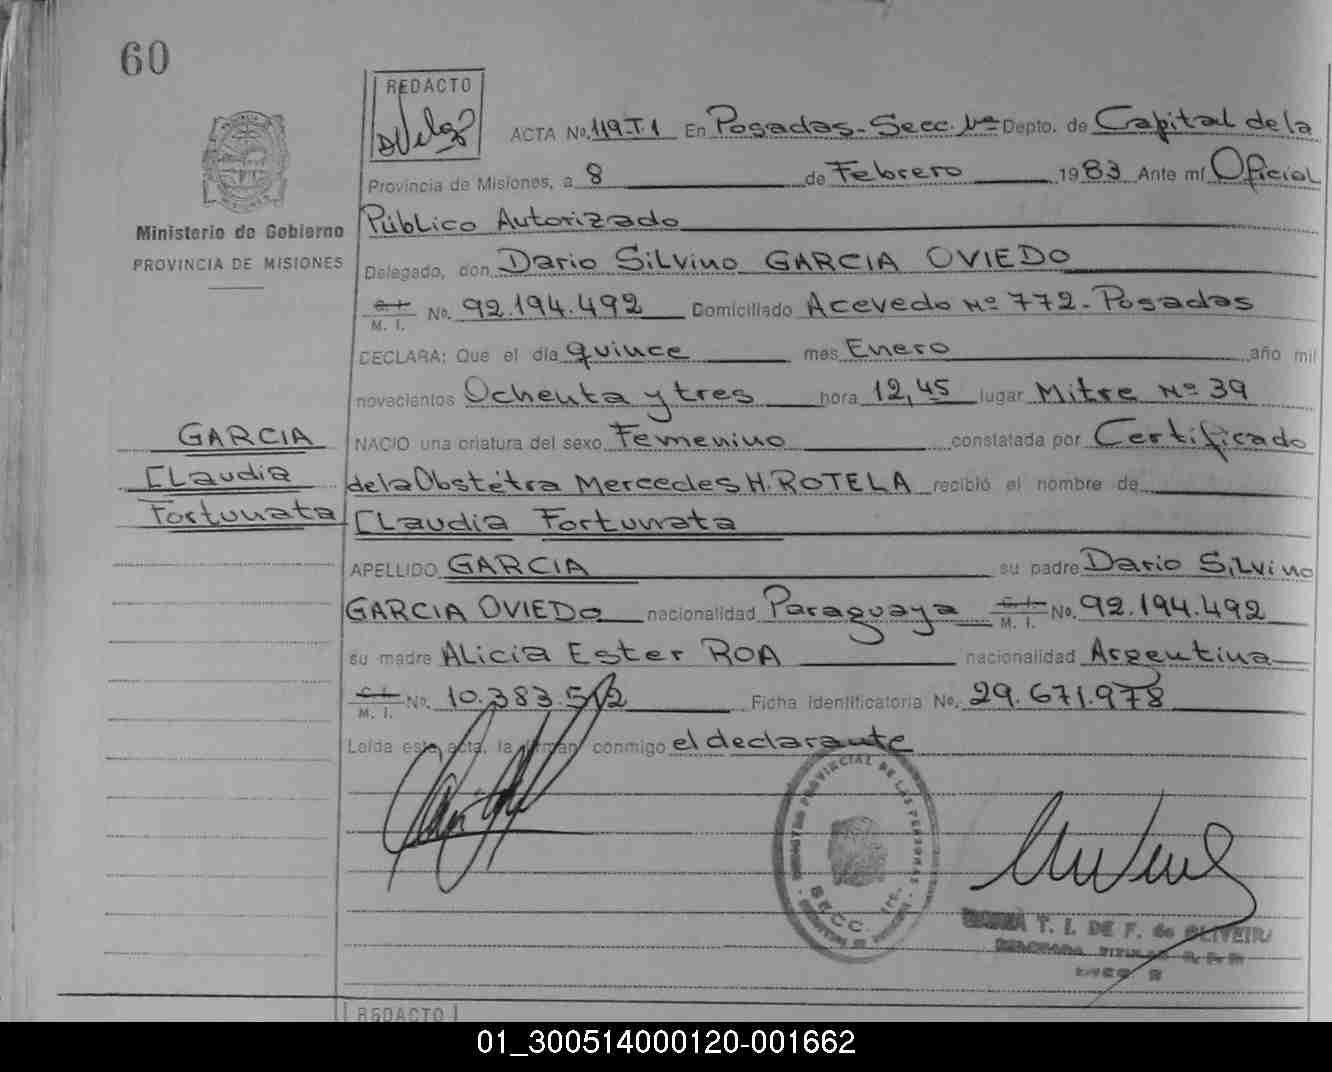 60
REDACTO
ACTA No. 119.T1 En Posadas-Secc. 1ra Depto. de Capital de la
Provincia de Misiones, a 8 de Febrero 1983 Ante mí Oficial
Ministerio de Gobierno
PROVINCIA DE MISIONES
Público Autorizado
Delegado, don Dario Silvino GARCIA OVIEDO
C. I. M. I. No. 92.194.492 Domiciliado Acevedo Nº 772-Posadas
DECLARA: Que el día quince mes Enero año mil
novecientos Ochenta y tres hora 12,45 lugar Mitre Nº 39
GARCIA
Claudia
Fortunata
NACIO una criatura del sexo Femenino constatada por Certificado
de la Obstétra Mercedes H. ROTELA recibió el nombre de
Claudia Fortunata
APELLIDO GARCIA su padre Dario Silvino
GARCIA OVIEDO nacionalidad Paraguaya C. I. M. I. No. 92.194.492
su madre Alicia Ester ROA nacionalidad Argentina
C. I. M. I. No. 10.383.512 Ficha identificatoria No. 29.671.978
Leída esta acta, la firman conmigo el declarante
REGISTRO PROVINCIAL DE LAS PERSONAS
SECC. 1ra.
T. I. DE F. de OLIVEIRA
REDACTO
01_300514000120-001662